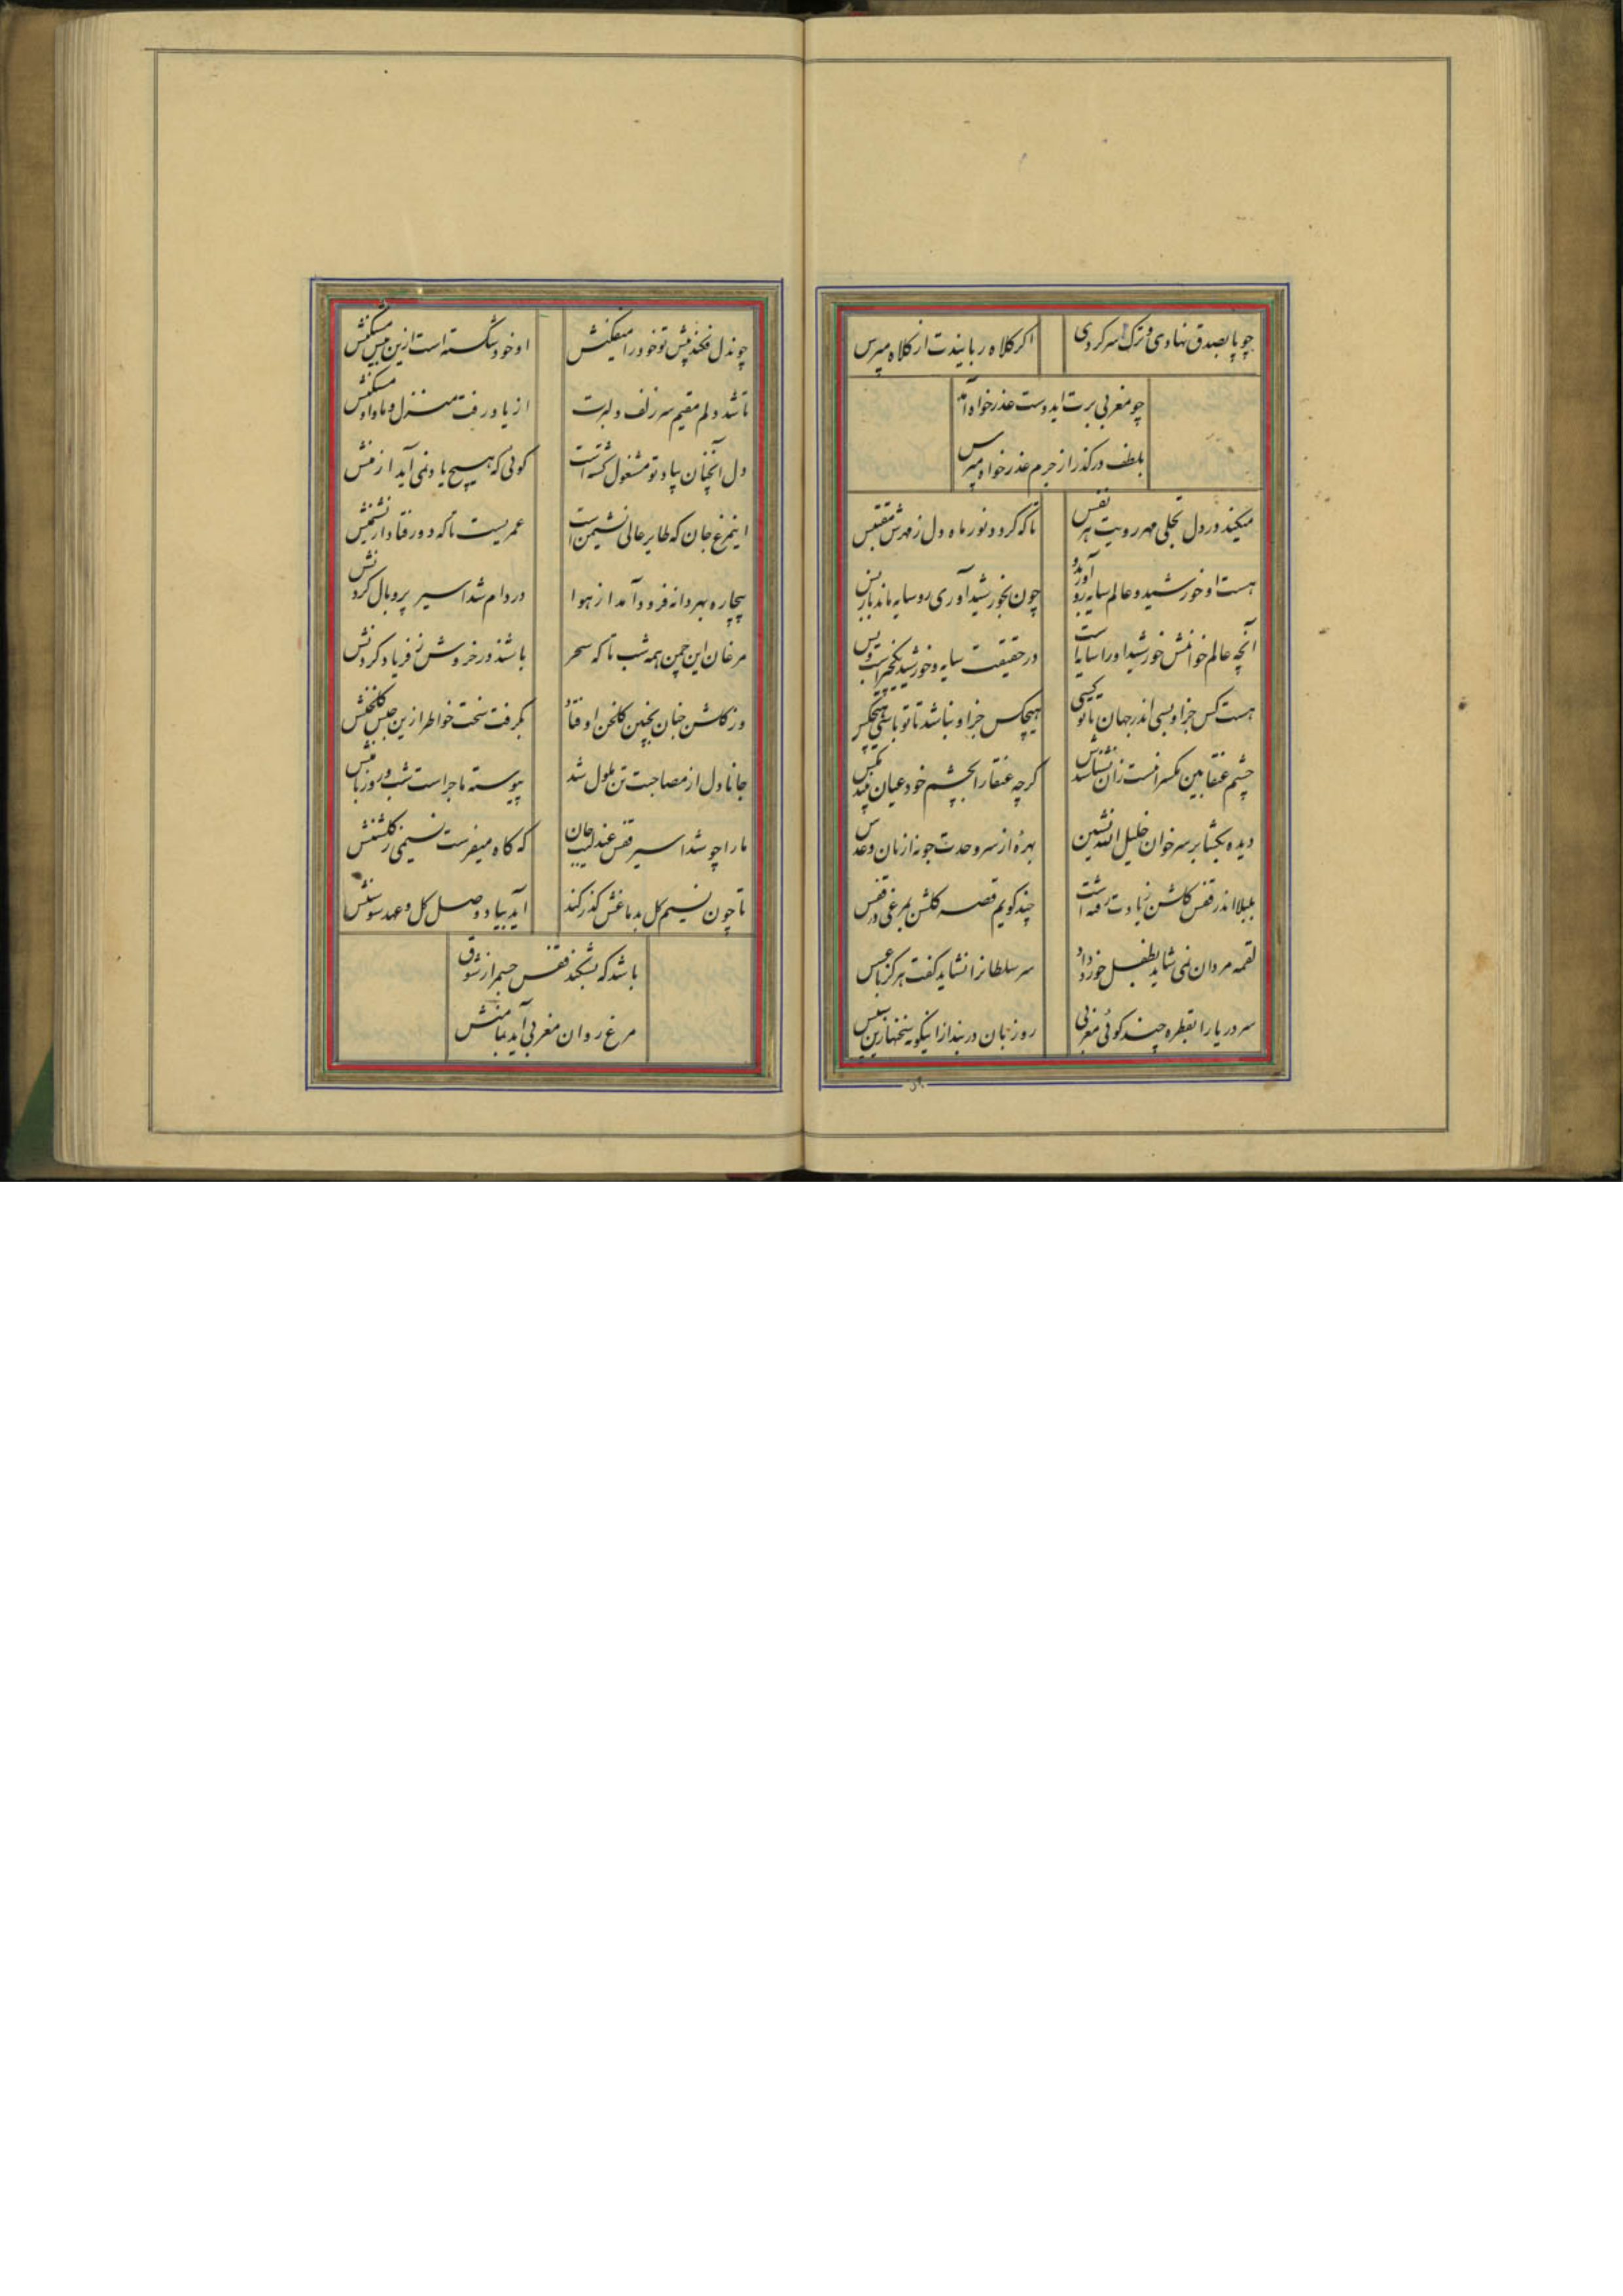 چو پا بصدق نهادی و ترک سر کردی
اکر کلاه ربایندت از کلاه مپرس
چو مغربی برت ایدوست عذر خواه آمد
بلطف درکذر از جرم عذر خواه مپرس
میکند در دل تجلی مهر رویت هر نفس
تا که کردد نور ماه دل ز مهرش مقتبس
هست او خورشید و عالم سایه رو آورد بدو
چون بخورشید آوری رو سایه ماند باز پس
آنچه عالم خوانمش خورشید او را سایه است
در حقیقت سایه و خورشید یکچیز است و بس
هست کس جز او بسی اندر جهان تا تو کسی
هیچکس جز او نباشد تا تو باشی هیچکس
چشم عنقا بین مکس را نیست زان نشناسدش
کرچه عنقا را بچشم خود عیان بیند مکس
دیده بکشا بر سر خوان خلیل الله نشین
بهرهٔ از سر وحدت جو نه از نان و عدس
بلبلا اندر قفس کلشن ز یادت رفته است
چند کویم قصه کلشن بمرغی در قفس
لقمه مردان نمی شاید بطفل خورد داد
سر سلطانرا نشاید کفت هرکز با عسس
سر دریا را بقطره چند کوئی مغربی
رو زبان در بند ازانیکونه سخنها زین سپس
چو ندل فکند پیش تو خود را میفکنش
او خود شکسته است ازین بیش مشکنش
تا شد دلم مقیم سر زلف دلبرت
از یاد رفت منزل و ماوا و مسکنش
دل آنچنان بیاد تو مشغول کشته است
کوئی که هیچ یاد نمی آید از منش
اینمرغ جان که طایر عالی نشیمن است
عمریست تا که دور فتاد از نشیمنش
بیچاره بهر دانه فرود آمد از هوا
در دام شد اسیر پر و بال کردنش
مرغان این چمن همه شب تا که سحر
باشند در خروش ز فریاد کردنش
وز کلشن جنان بچنین کلخن اوفتاد
بکرفت سخت خواطر ازین حبس کلخنش
جانا دل از مصاحبت تن ملول شد
پیوسته ماجراست شب و روز با تنش
ما را چو شد اسیر قفس عندلیب جان
که کاه میفرست نسیمی ز کلشنش
تا چون نسیم کل بدماغش کذر کند
آید بیاد وصل کل و عهد سوسنش
باشد که بشکند قفس جسم از شوق
مرغ روان مغربی آید بمامنش